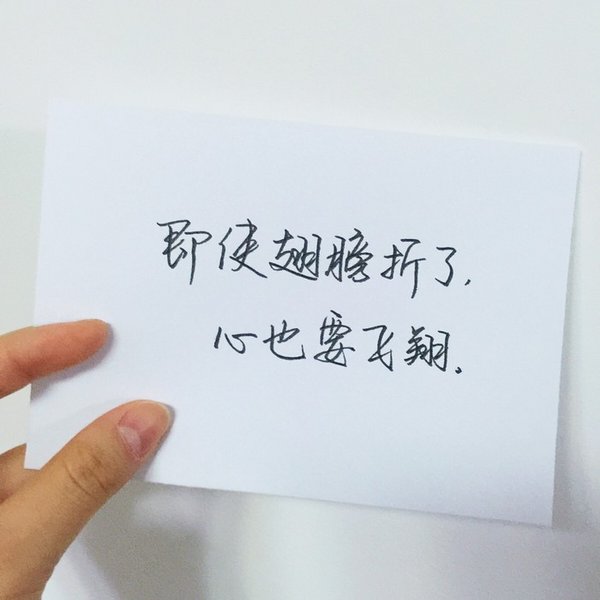 即使翅膀折了，
心也要飞翔.